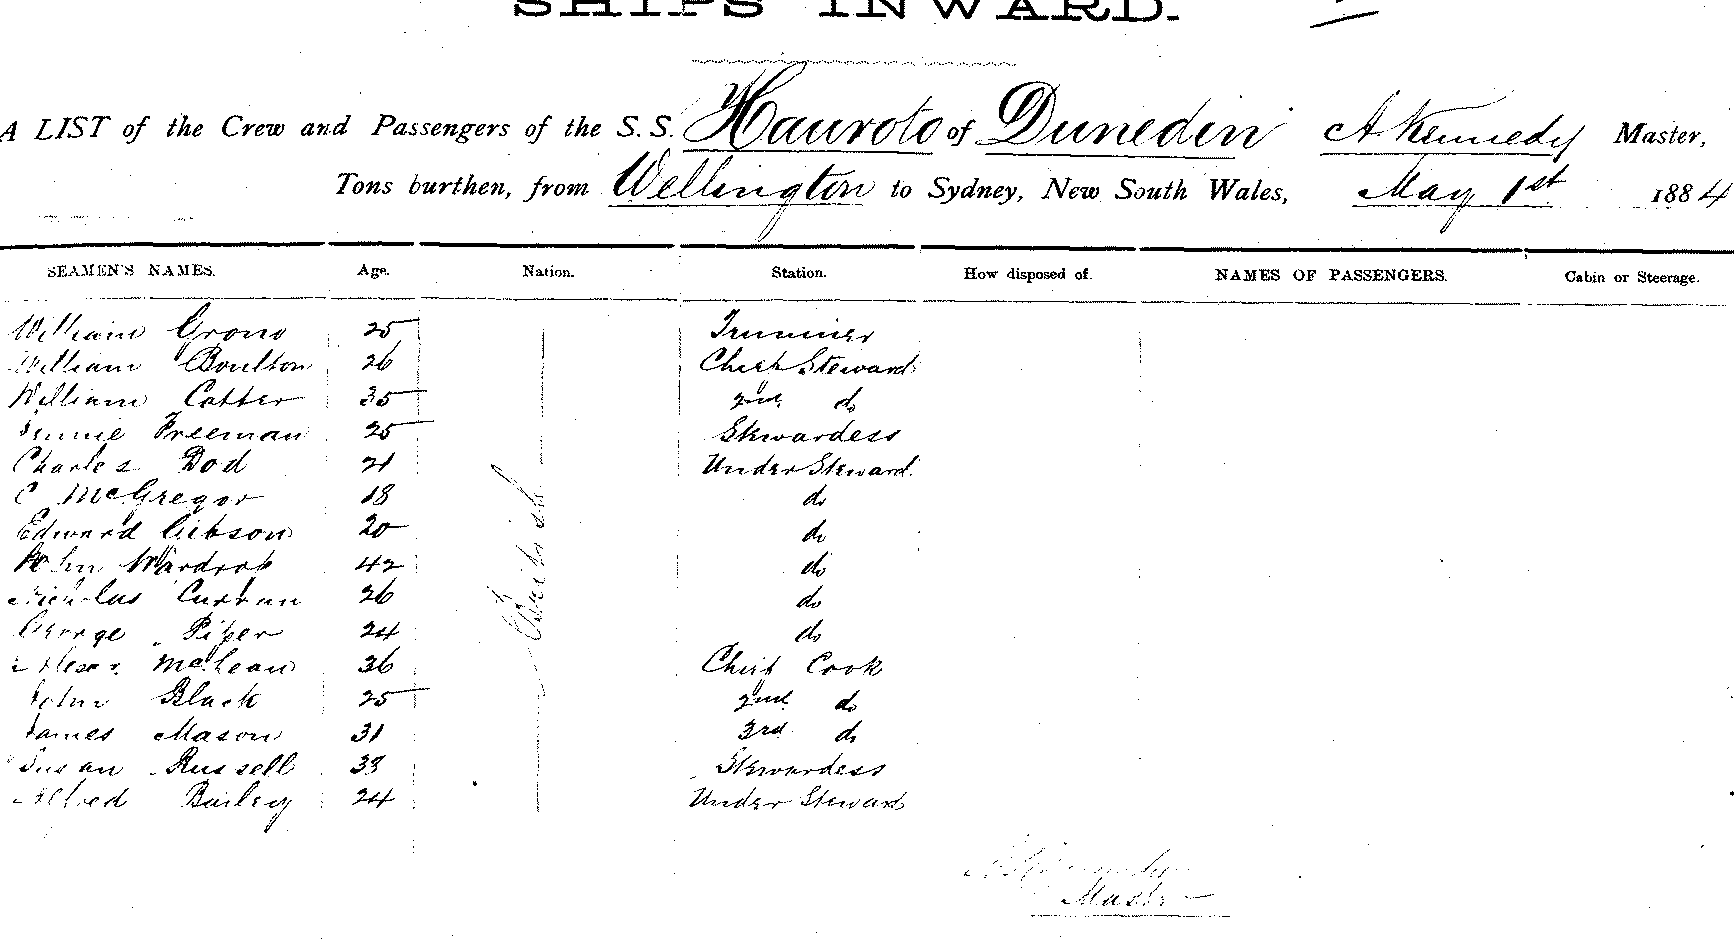 SHIPS INWARD.
A LIST of the Crew and Passengers of the S.S. Hauroto of Dunedin A Kennedy Master,
Tons burthen, from Wellington to Sydney, New South Wales, May 1st 1884
SEAMEN'S NAMES. Age. Nation. Station. How disposed of. NAMES OF PASSENGERS. Cabin or Steerage.
William Grono 25 Trimmer
William Boulton 26 Chief Steward
William Cotter 35 2nd do
Freeman 25 Stewardess
Charles Dod 21 Under Steward
C McGregor 18 do
Edward Gibson 20 do
John Wardrop 42 do
Nicholas Curran 26 do
George Piper 24 do
McLean 36 Chief Cook
John Black 25 2nd do
James Mason 31 3rd do
Susan Russell 33 Stewardess
Alfred Bailey 24 Under Steward
British
Master